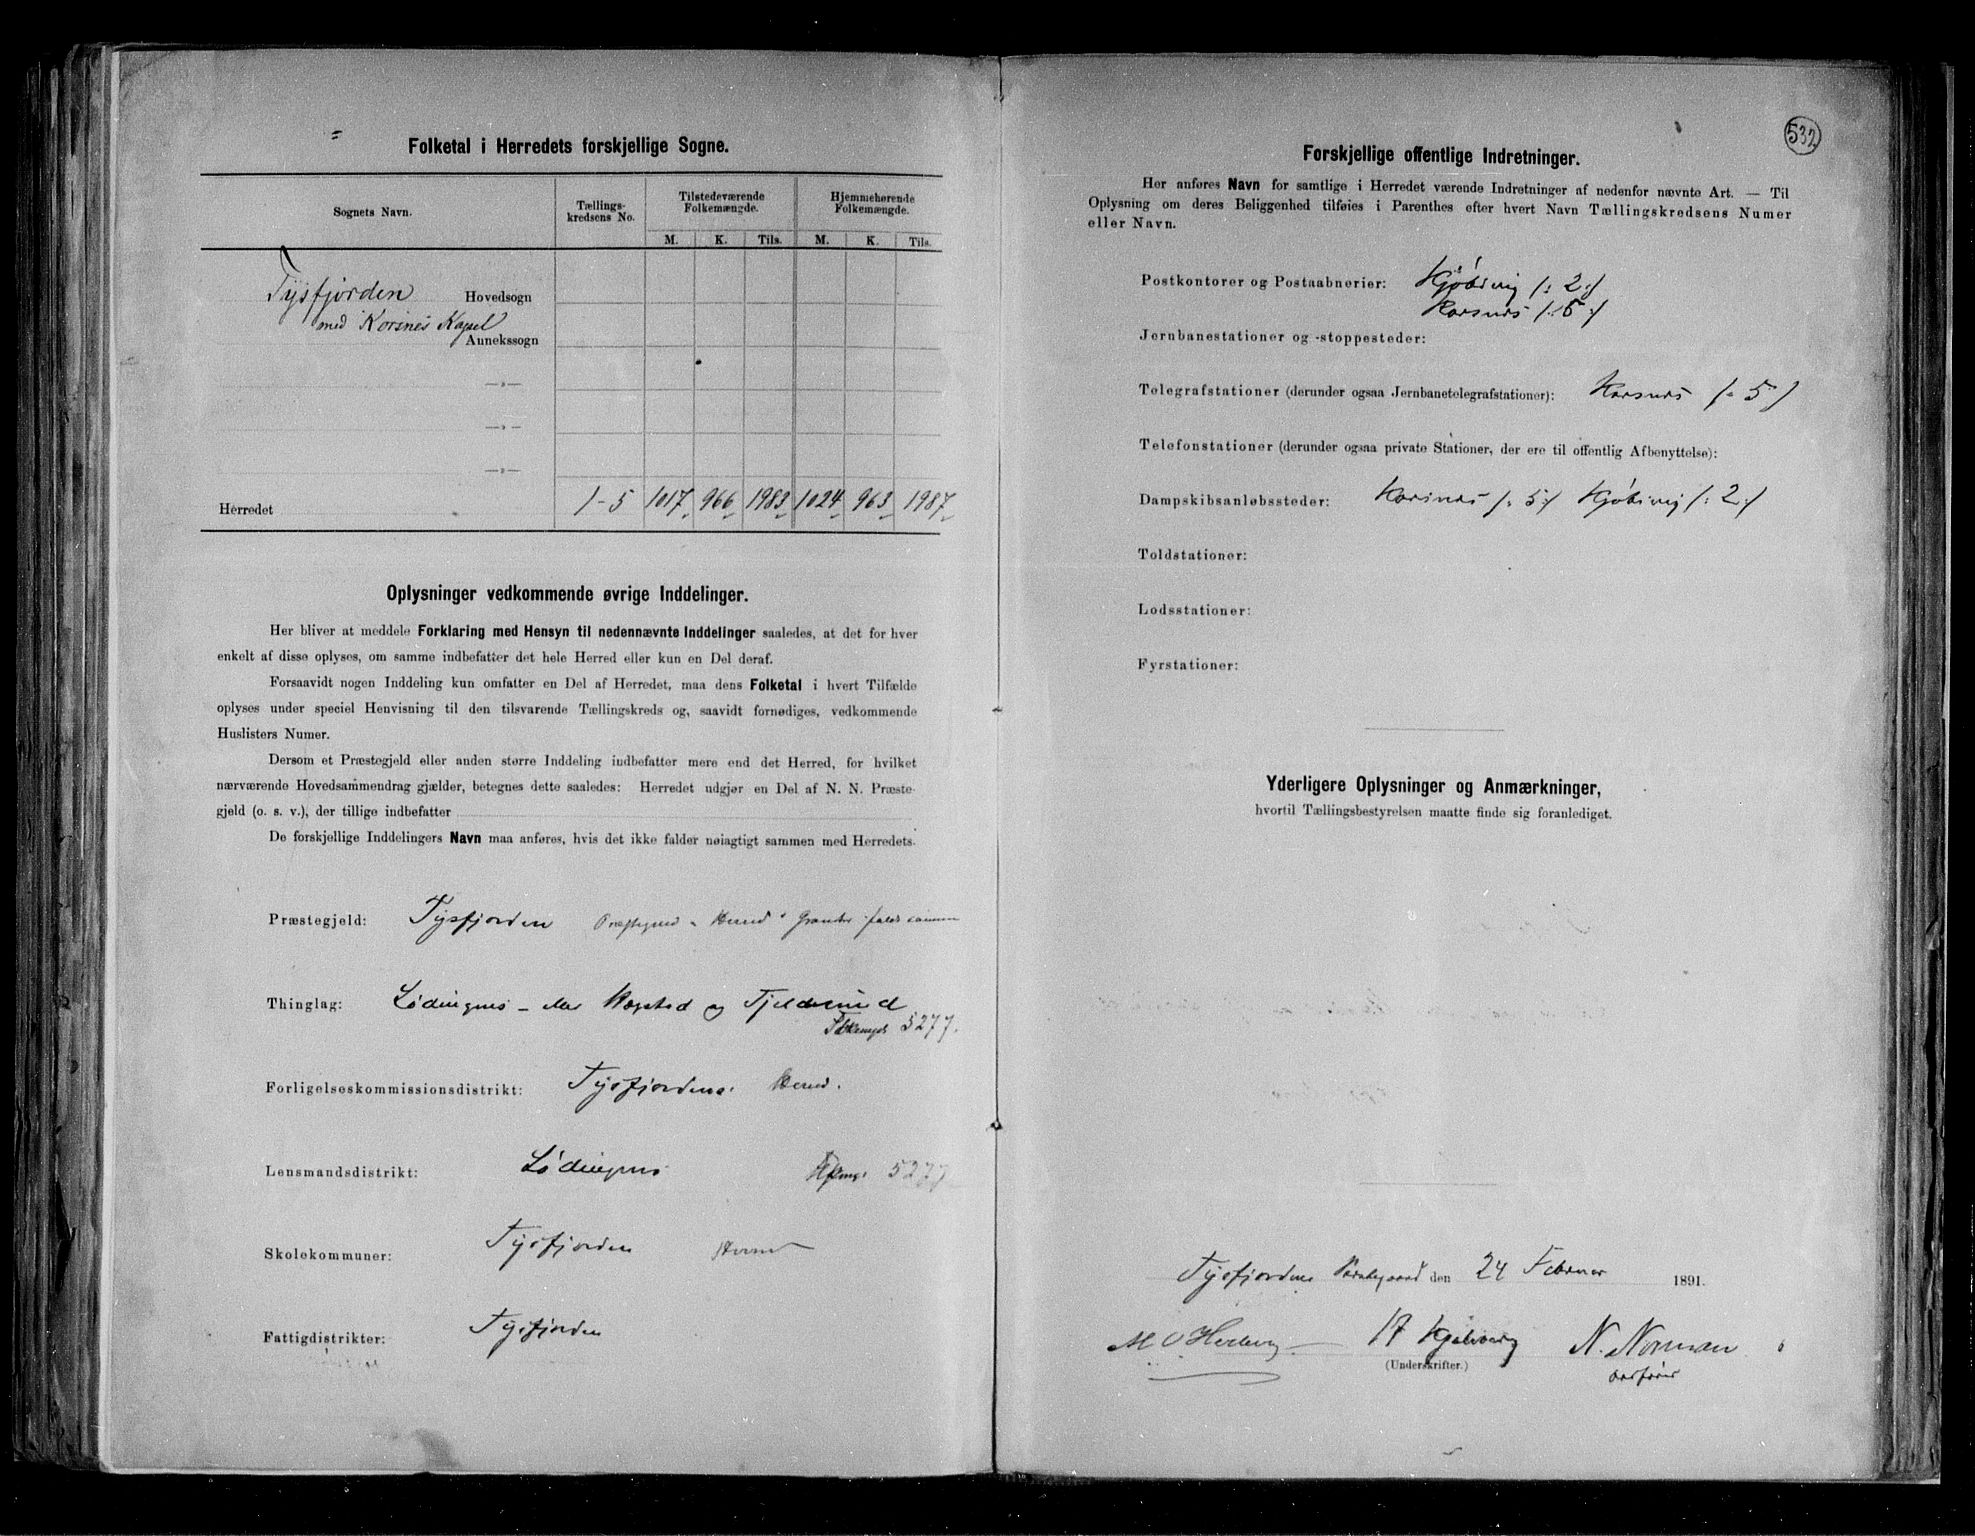 Folketal i Herredets forskjellige Sogne.
Sognets Navn.
Tællings-
kredsens No.
Tilstedeværende
Folkemængde.
Hjemmehørende
Folkemængde.
M. K. Tils. M. K. Tils.
Tysfjorden Hovedsogn
med Korsnes Kapel
Annekssogn
—»—
—»—
—»—
Herredet 1-5 1017 966 1983 1024 963 1987
Oplysninger vedkommende øvrige Inddelinger.
Her bliver at meddele Forklaring med Hensyn til nedennævnte Inddelinger saaledes, at det for hver
enkelt af disse oplyses, om samme indbefatter det hele Herred eller kun en Del deraf.
Forsaavidt nogen Inddeling kun omfatter en Del af Herredet, maa dens Folketal i hvert Tilfælde
oplyses under speciel Henvisning til den tilsvarende Tællingskreds og, saavidt fornødiges, vedkommende
Huslisters Numer.
Dersom et Præstegjeld eller anden større Inddeling indbefatter mere end det Herred, for hvilket
nærværende Hovedsammendrag gjælder, betegnes dette saaledes: Herredet udgjør en Del af N. N. Præste-
gjeld (o. s. v.), der tillige indbefatter
De forskjellige Inddelingers Navn maa anføres, hvis det ikke falder nøiagtigt sammen med Herredets.
Præstegjeld: Tysfjorden
Thinglag: Lødingens - og Tjeldsund
5277.
Forligelseskommissionsdistrikt: Tysfjordens Herred.
Lensmandsdistrikt: Lødingens 5277
Skolekommuner: Tysfjorden Herred
Fattigdistrikter: Tysfjorden
532
Forskjellige offentlige Indretninger.
Her anføres Navn for samtlige i Herredet værende Indretninger af nedenfor nævnte Art. — Til
Oplysning om deres Beliggenhed tilføies i Parenthes efter hvert Navn Tællingskredsens Numer
eller Navn.
Postkontorer og Postaabnerier: Kjøbsvig /: 2 :/
Korsnes /: 5 :/
Jernbanestationer og -stoppesteder:
Telegrafstationer (derunder ogsaa Jernbanetelegrafstationer): Korsnes /: 5 :/
Telefonstationer (derunder ogsaa private Stationer, der ere til offentlig Afbenyttelse):
Dampskibsanløbssteder: Korsnes /: 5 :/ Kjøbsvig /: 2 :/
Toldstationer:
Lodsstationer:
Fyrstationer:
Yderligere Oplysninger og Anmærkninger,
hvortil Tællingsbestyrelsen maatte finde sig foranlediget.
Tysfjordens Præstegaard den 24 Februar 1891.
N. Norman
(Underskrifter.)
ordfører